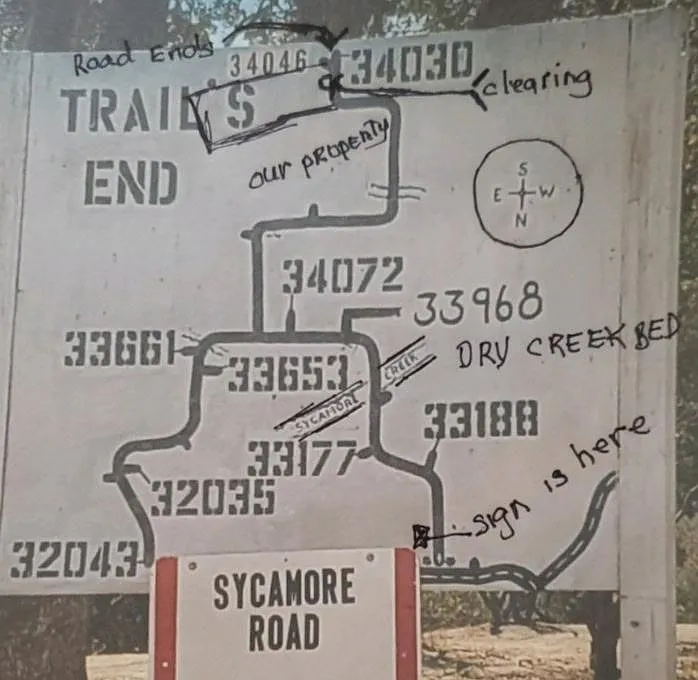 Road Ends
34046
34030
clearing
TRAIL'S
END
our property
S
E W
N
34072
33968
33661
33653
DRY CREEK BED
SYCAMORE CREEK
33188
33177
sign is here
32035
32043
SYCAMORE
ROAD